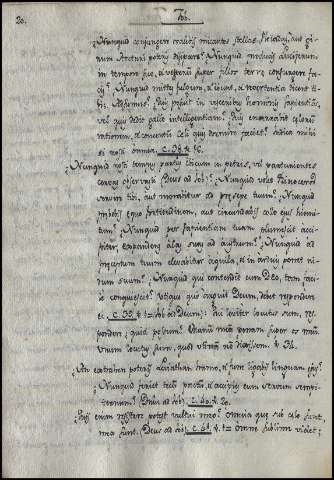 20. Job.
¿Nunquid conjungere valebis micantes stellas Pleiadas, aut gi-
rum Arcturi poteris dissipare? Nunquid producis Luciferum
in tempore suo, et vesperum super filios terræ consurgere fa-
cis? Nunquid mittes fulgura, et ibunt, et revertentia dicent ti-
bi: Adsumus? Quis posuit in visceribus hominis sapientiam,
vel quis dedit gallo intelligentiam? Quis enarrabit cælorum
rationem, et concentum cæli quis dormire faciet?
¿Nunquid nosti tempus partus ibicum in petris, vel parturientes
cervas observasti (Deus ad Job)? Nunquid volet Rinoceros
servire tibi, aut morabitur ad præsepe tuum? Nunquid
præbebis equo fortitudinem, aut circumdabis collo ejus hinni-
tum? Nunquid per sapientiam tuam plumescit acci-
piter, expandens alas suas ad austrum? Nunquid ad
præceptum tuum elevabitur aquila, et in arduis ponet ni-
dum suum? Nunquid qui contendit cum Deo, tam faci-
le conquiescit? Utique qui arguit Deum, debet respondere
ei. c. 39. Qui leviter locutus sum, res-
pondere quid possum? Manum meam ponam super os meum.
Unum locutus sum, quod utinam non dixissem. 34.
An extrahere poteris Leviathan hamo, et fune ligabis linguam ejus?
¿Nunquid feriet tecum pactum, et accipies eum servum sempi-
ternum? (Deus ad Job) c. 40. 20.
¿Quis enim resistere potest vultui meo? omnia quæ sub cælo sunt,
mea sunt. (Deus ad Job) c. 41. omne sublime videt;